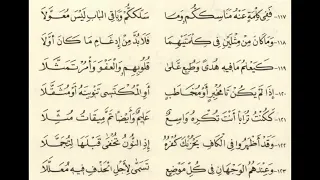 ١١٧- فَفِي كِلْمَةٍ عَنْهُ مَنَاسِكَكُمْ وَمَا سَلَكْكُمْ وَبَاقِي الْبَابِ لَيْسَ مُعَوَّلَا
١١٨- وَمَا كَانَ مِنْ مِثْلَيْنِ فِي كِلْمَتَيْهِمَا فَلَابُدَّ مِنْ إِدْغَامِ مَا كَانَ أَوَّلَا
١١٩- كَيَعْلَمُ مَا فِيهِ هُدًى وَطُبِعْ عَلَى قُلُوبِهِمُ وَالْعَفْوَ وَأْمُرْ تَمَثَّلَا
١٢٠- إِذَا لَمْ يَكُنْ تَا مُخْبِرٍ أَوْ مُخَاطَبٍ أَوِ الْمُكْتَسِي تَنْوِينُهُ أَوْ مُثَقَّلَا
١٢١- كَكُنْتُ تُرَابًا أَنْتَ تُكْرِهُ وَاسِعٌ عَلِيمٌ وَأَيْضًا تَمَّ مِيقَاتُ مُثِّلَا
١٢٢- وَقَدْ أَظْهَرُوا فِي الْكَافِ يَحْزُنْكَ كُفْرُهُ إِذِ النُّونُ تُخْفَى قَبْلَهَا لِتُجَمَّلَا
١٢٣- وَعِنْدَهُمُ الْوَجْهَانِ فِي كُلِّ مَوْضِعٍ تَسَمَّى لِأَجْلِ الْحَذْفِ فِيهِ مُعَلَّلَا